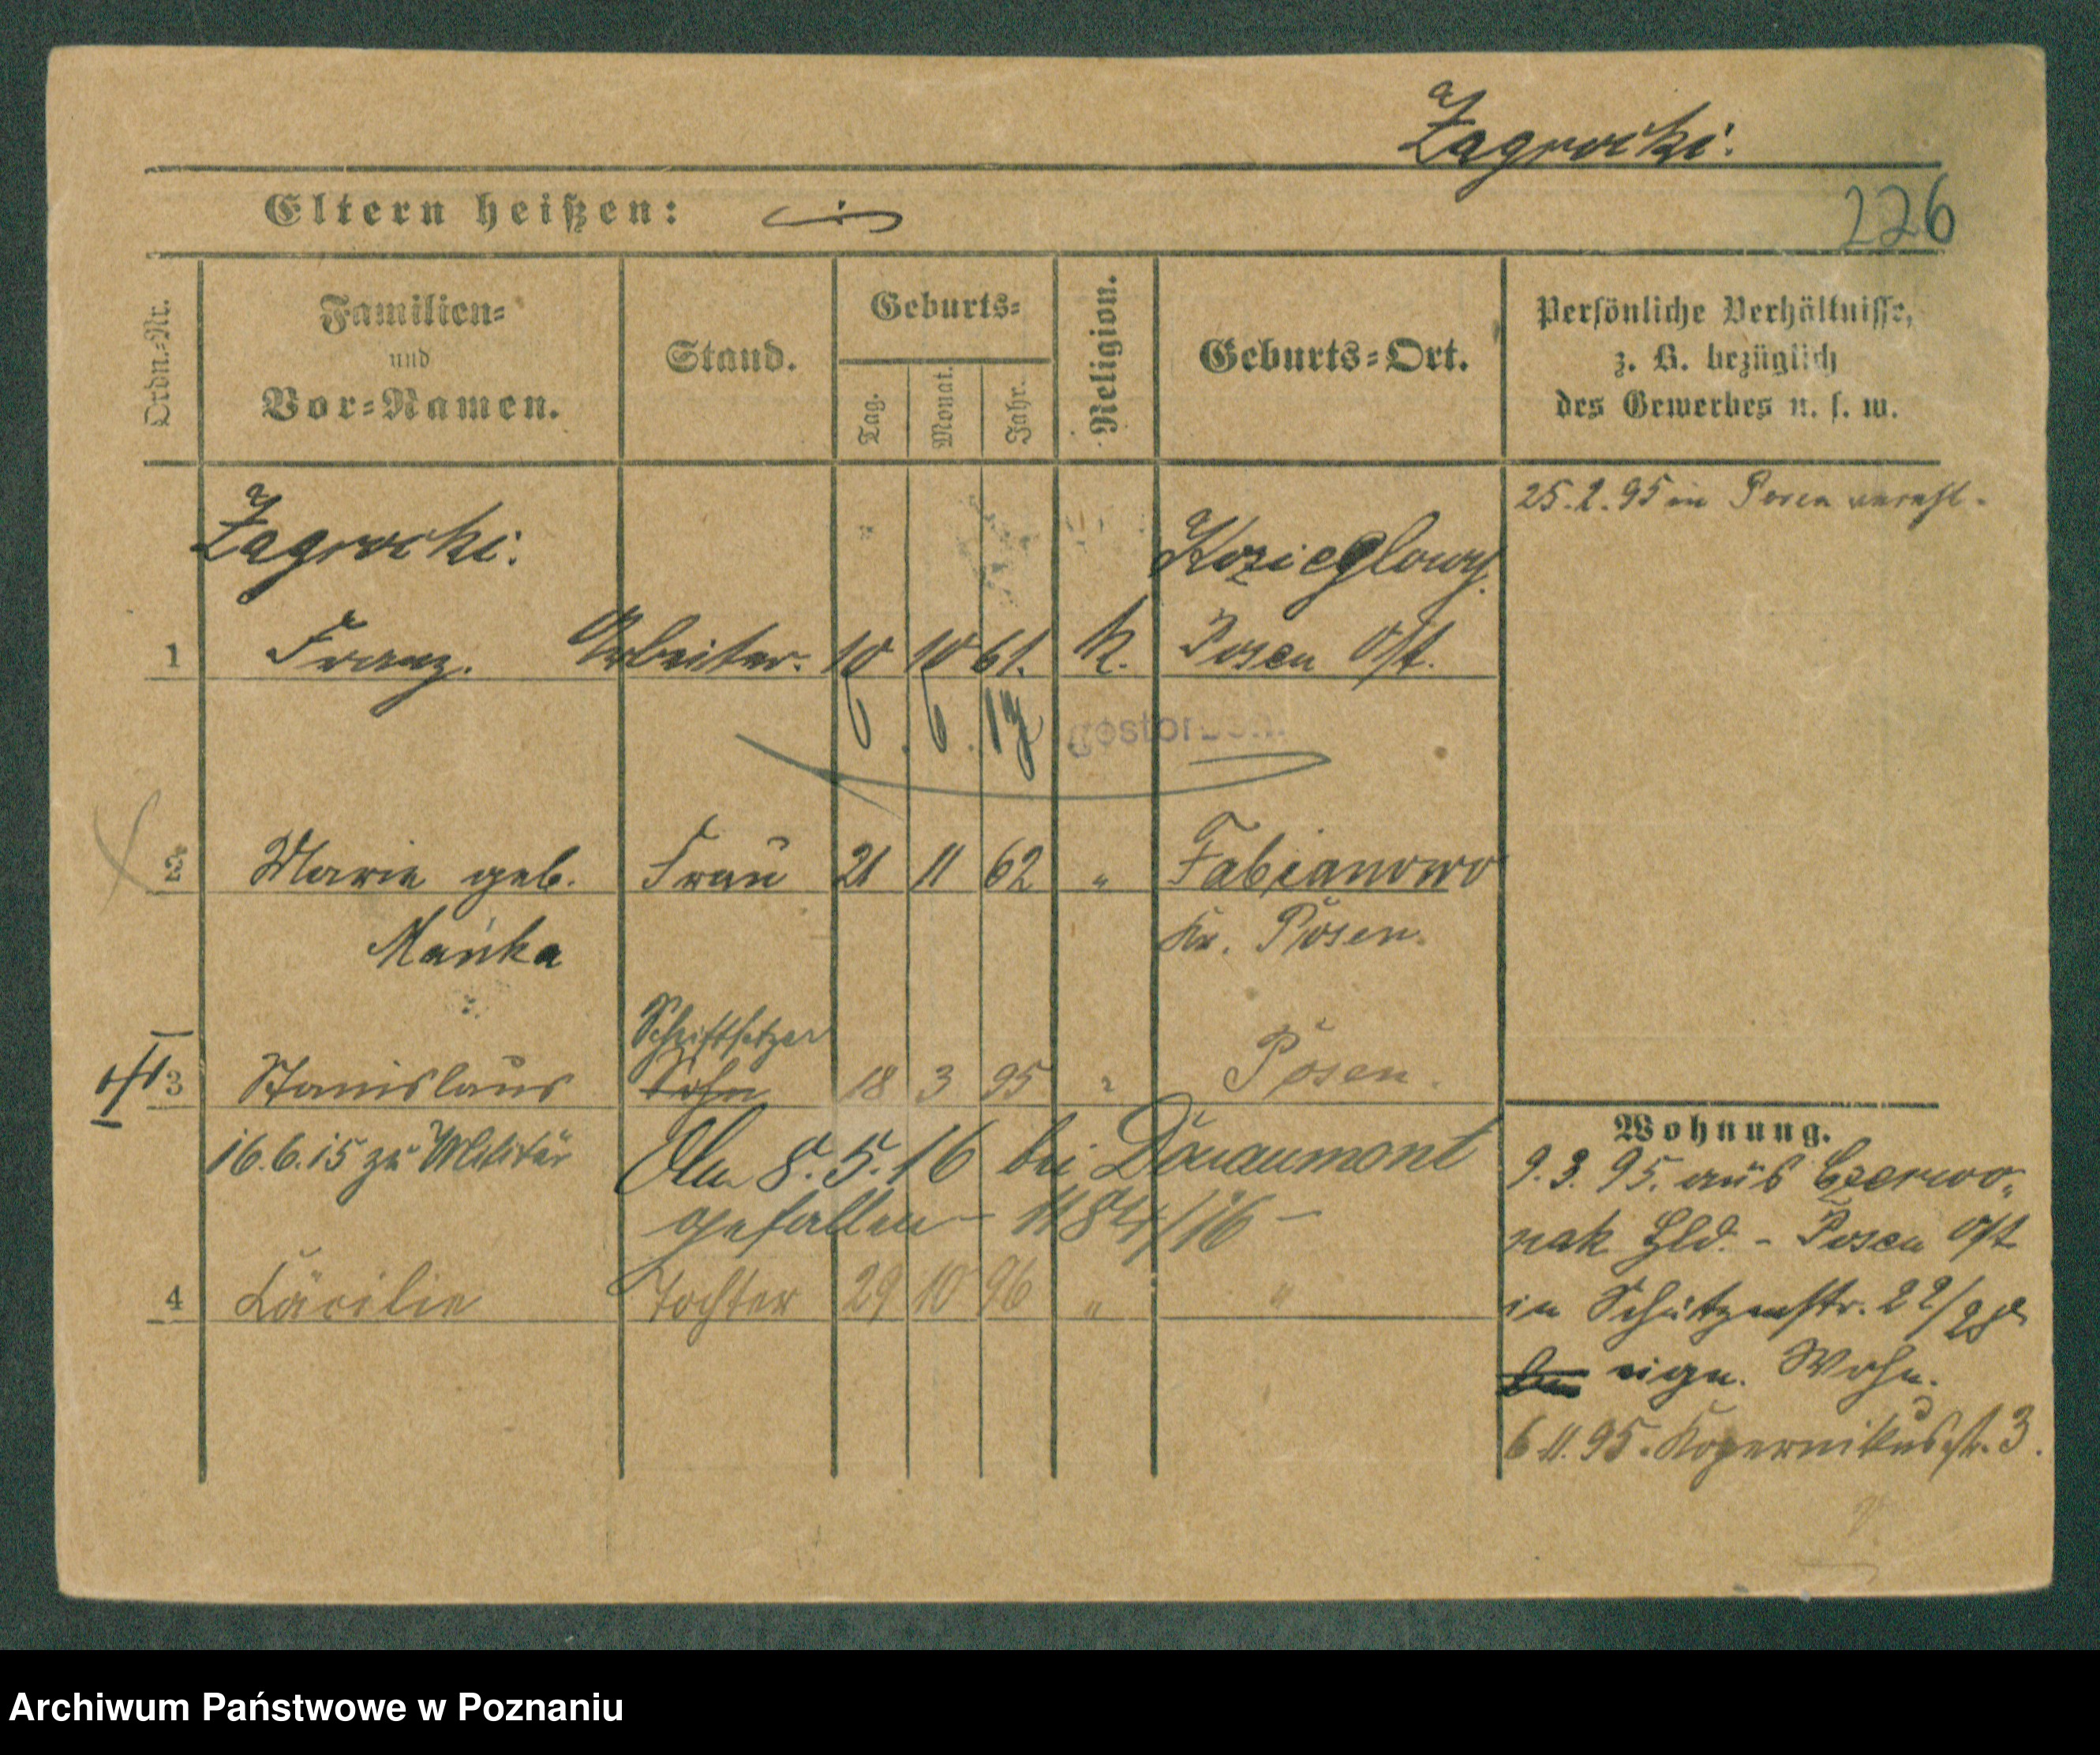 Zagrocki.
226
Eltern heißen:
Ordn.-Nr.
Familien-
und
Vor-Namen.
Stand.
Geburts-
Tag.
Monat.
Jahr.
Religion.
Geburts-Ort.
Persönliche Verhältnisse,
z. B. bezüglich
des Gewerbes u. s. w.
25.2.95 in Posen
Zagrocki.
Kozieglowy.
1 Franz. Arbeiter. 10 10 61. K. Posen Ost.
6. 6. 17 gestorben
2 Marie geb. Frau 21 11 62 " Fabianowo
Mańka Kr. Posen.
Schriftsetzer
3 Stanislaus Sohn 18 3 95 " Posen.
16.6.15 zu Militär Am 8.5.16 bei Douaumont
gefallen - 1184/16 -
4 Cäcilie Tochter 29 10 96 " "
Wohnung.
9.3.95. aus Czerwo-
nak Hld. - Posen Ost
in Schützenstr. 22/
eign. Wohn.
6.11.95. Kopernikusstr. 3.
Archiwum Państwowe w Poznaniu